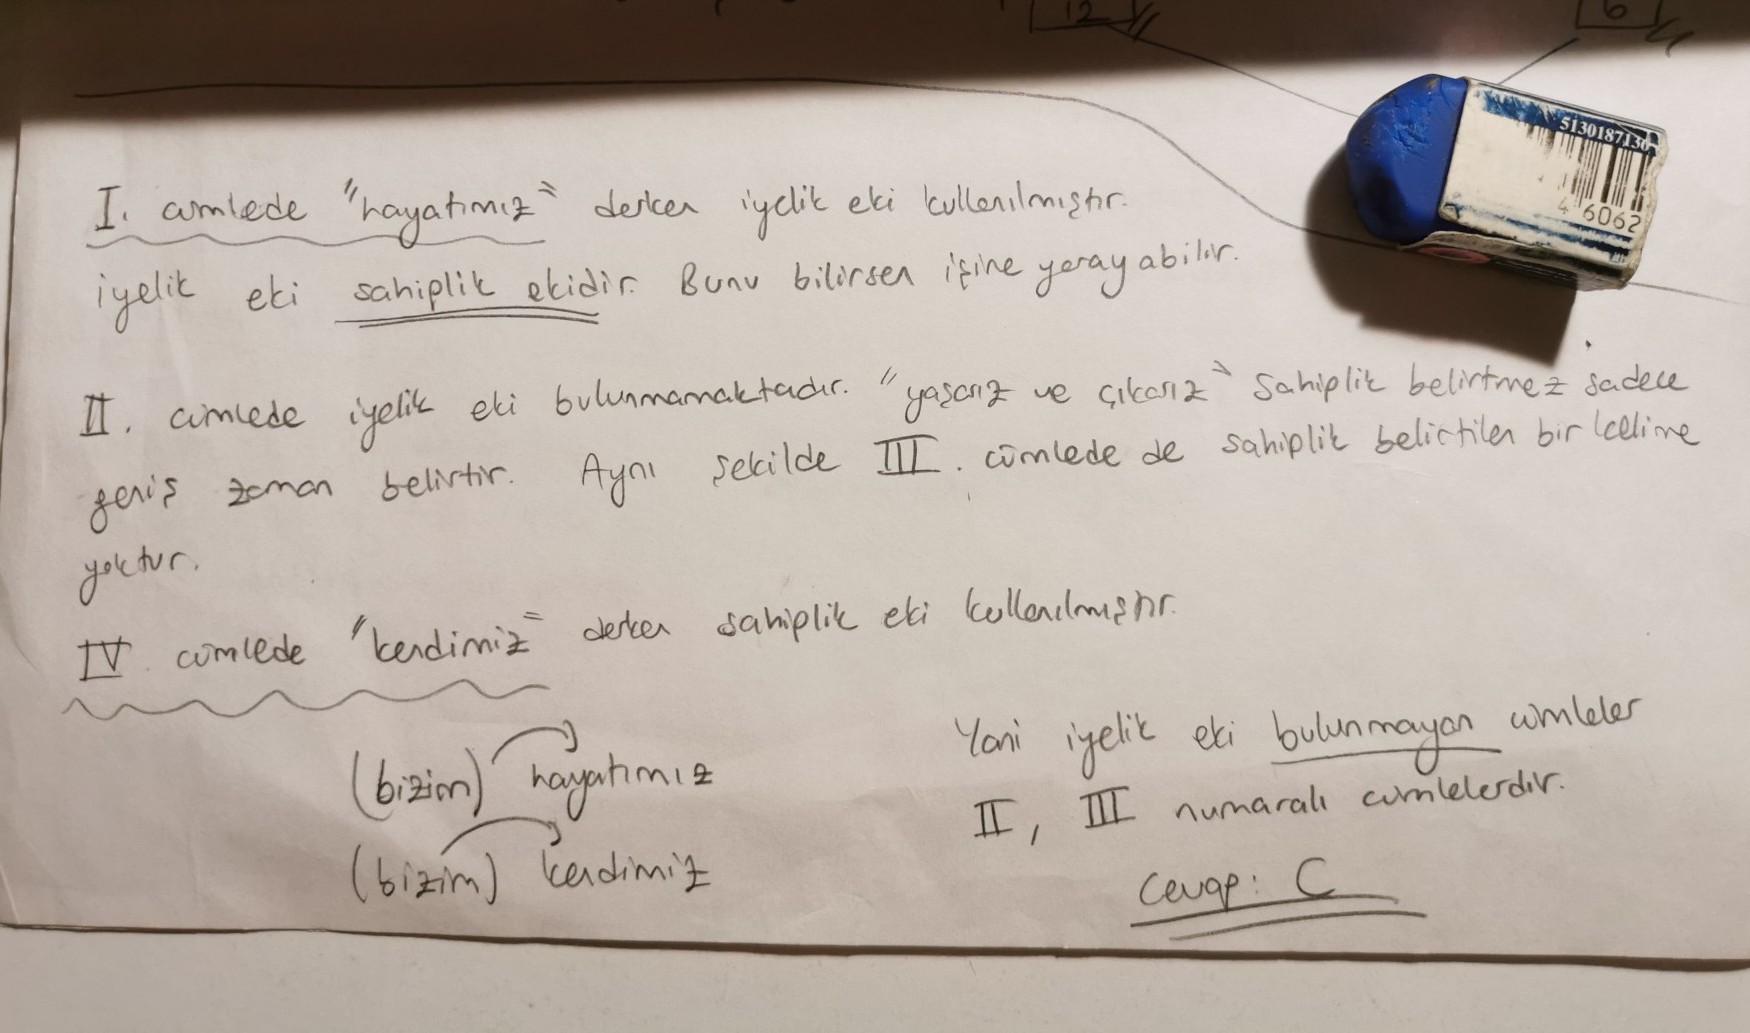 12
6
5130187130
4 6062
I. cümlede "hayatımız" derken iyelik eki kullanılmıştır.
iyelik eki sahiplik ekidir. Bunu bilirsen işine yarayabilir.
II. cümlede iyelik eki bulunmamaktadır. "yaşarız ve çıkarız" sahiplik belirtmez sadece
geniş zaman belirtir. Aynı şekilde III. cümlede de sahiplik belirtilen bir kelime
yoktur.
IV. cümlede "kendimiz" derken sahiplik eki kullanılmıştır.
(bizim) hayatımız
(bizim) kendimiz
Yani iyelik eki bulunmayan cümleler
II, III numaralı cümlelerdir.
Cevap: C